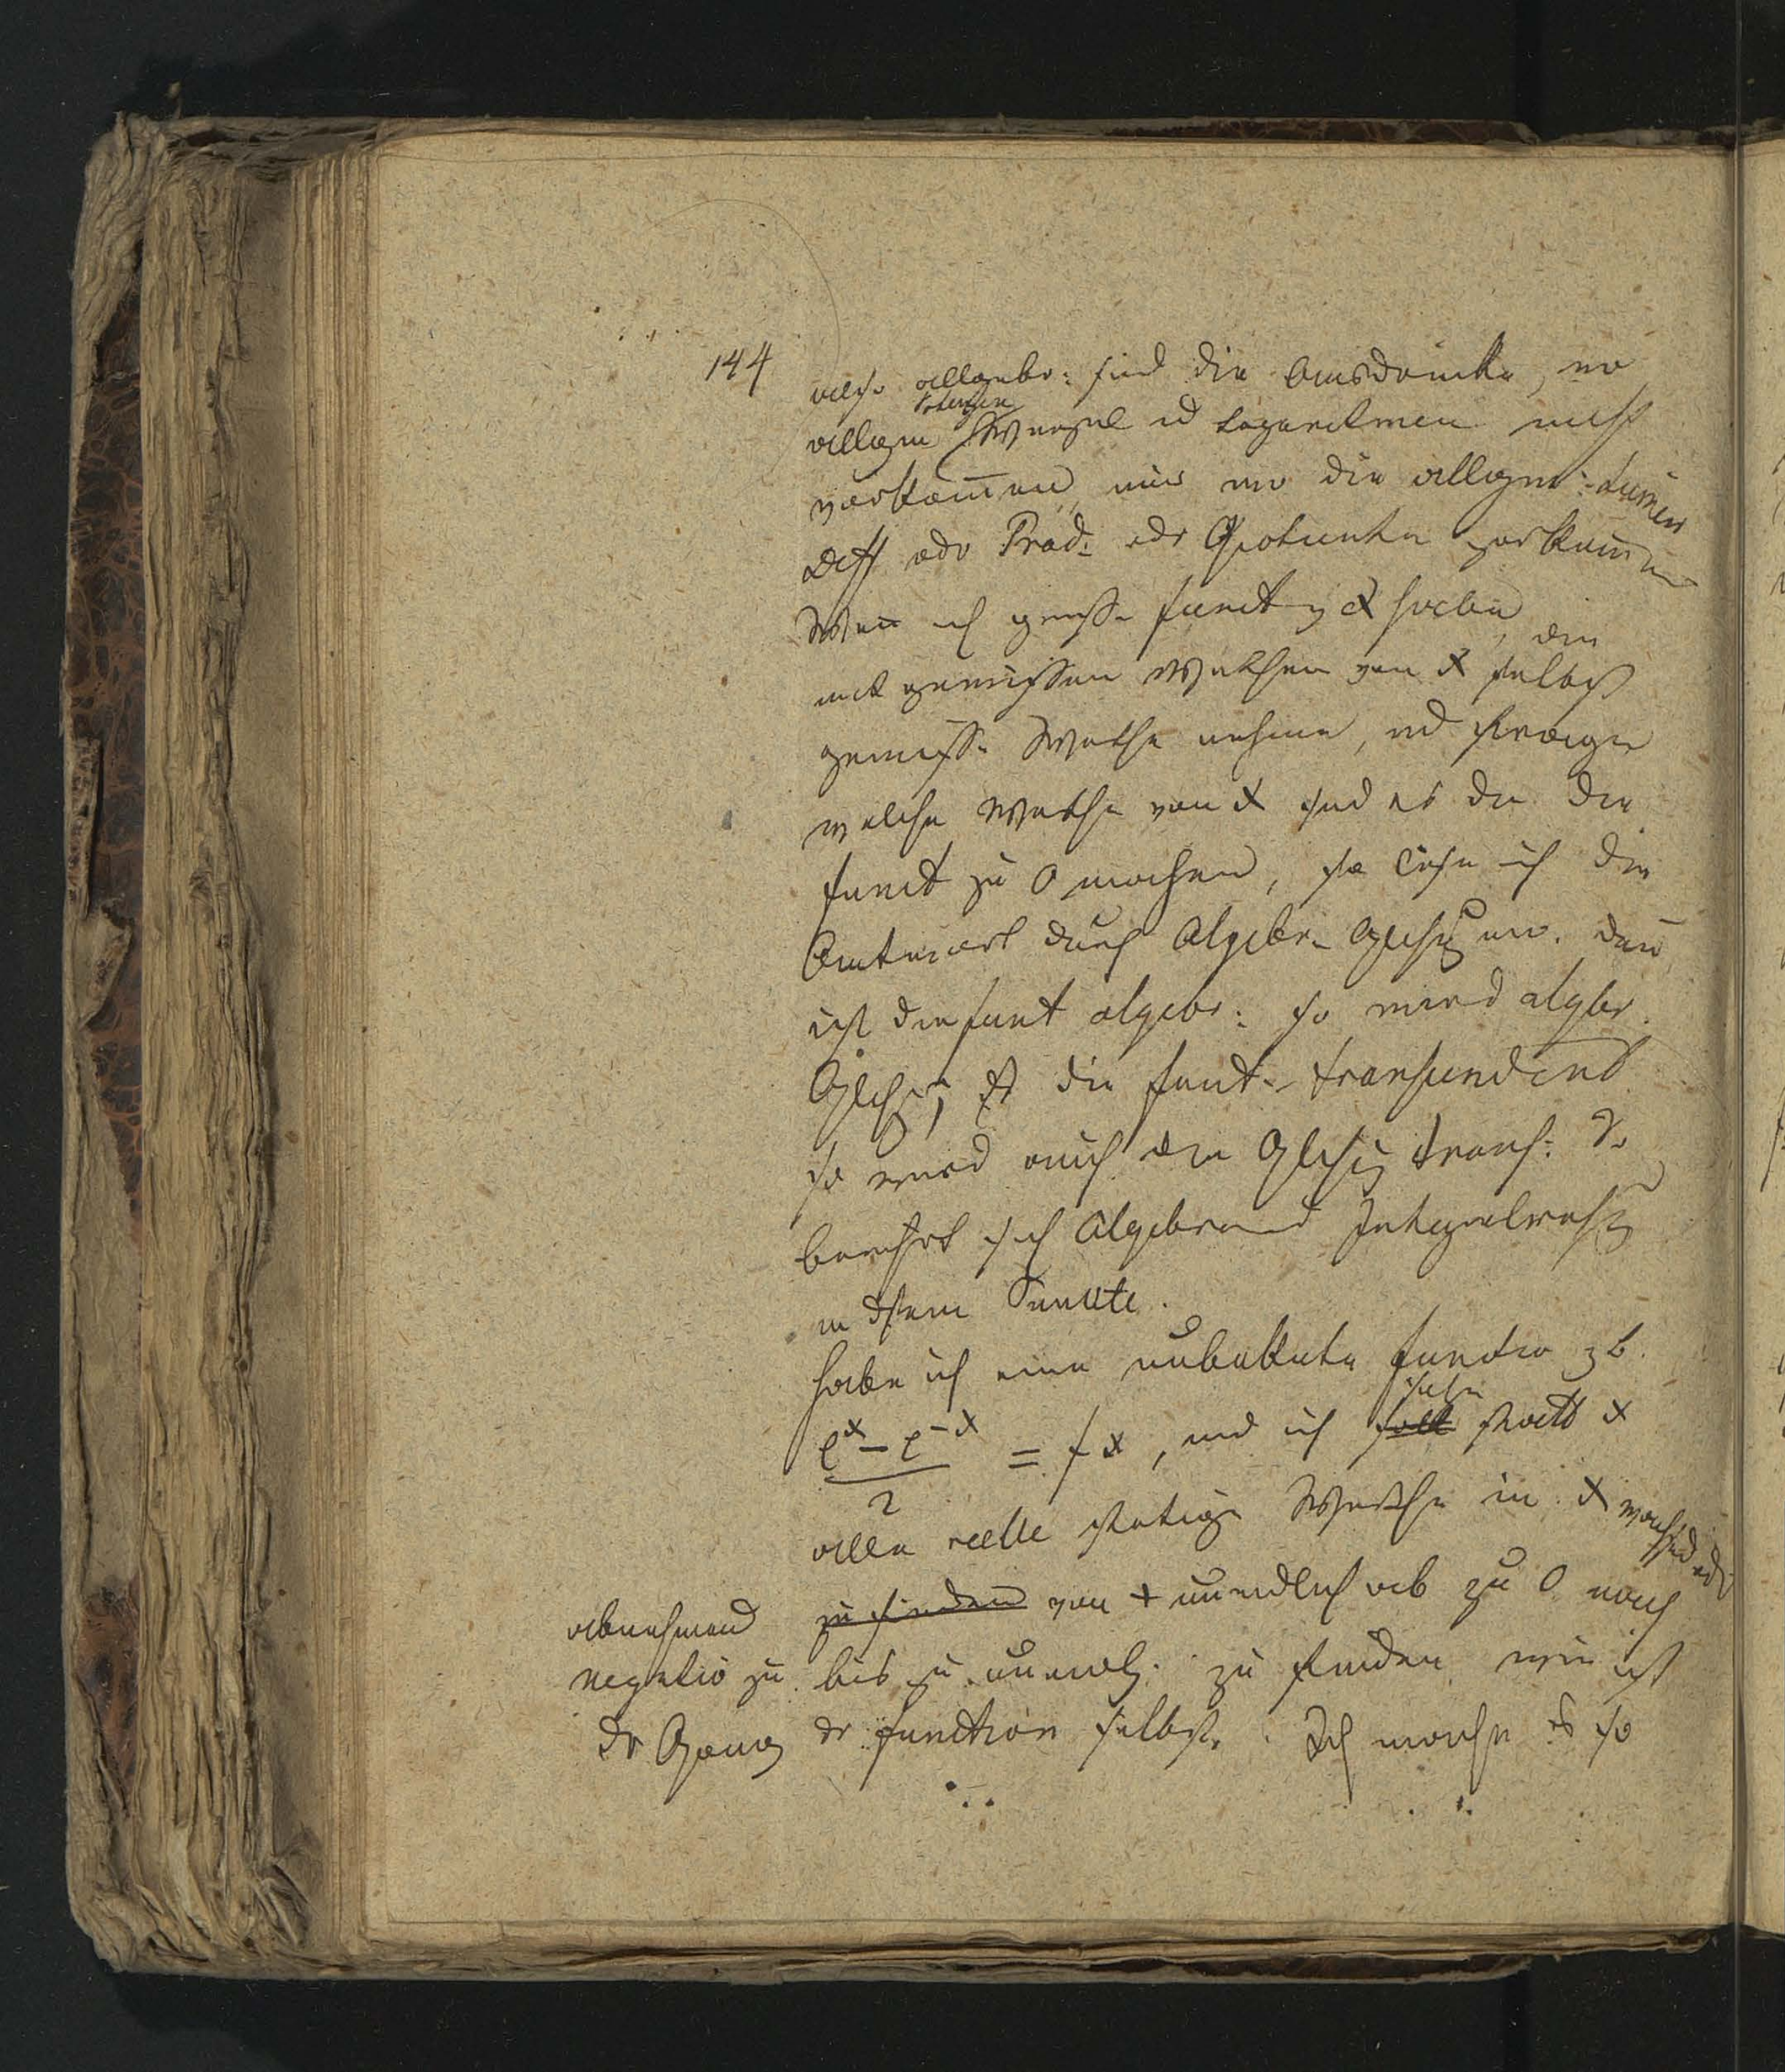 144
also allgebr: sind die Ausdrücke, wo
Potenzen
allgem Wurzel ud Logaritmen nicht
vorkom̄en, nur wo die allgem: Sum̄en
Diff odr Prod: odr Quotienten vorkom̄en
Wen ich gewisse funct v x habe, die
mit gewissen Werthen von x selbst
gewisse Werthe nehme, ud frage
welche Werthe von x sind es die die
funct zu 0 machen, so lese ich die
Antwort durch Algebr. Gleichg an. den̄
ist die funt algebr: so wird algbr.
Gleichg, Ist die funt. transcendent
so wird auch die Gleichg transc: So
berührt sich Algebra und Integralrechg
in dsem Punkte.
Habe ich eine unbekkate function zb.
(e^x - e^-x) / 2 = f x, und ich soll statt x
setze
alle reelle stetige Werthe in x wachsend odr
abnehmend zu finden von + unendlich ab zu 0 nach
negativ zu bis zu unendl. zu finden wie ist
dr Gang dr function selbst. Ich mache es so